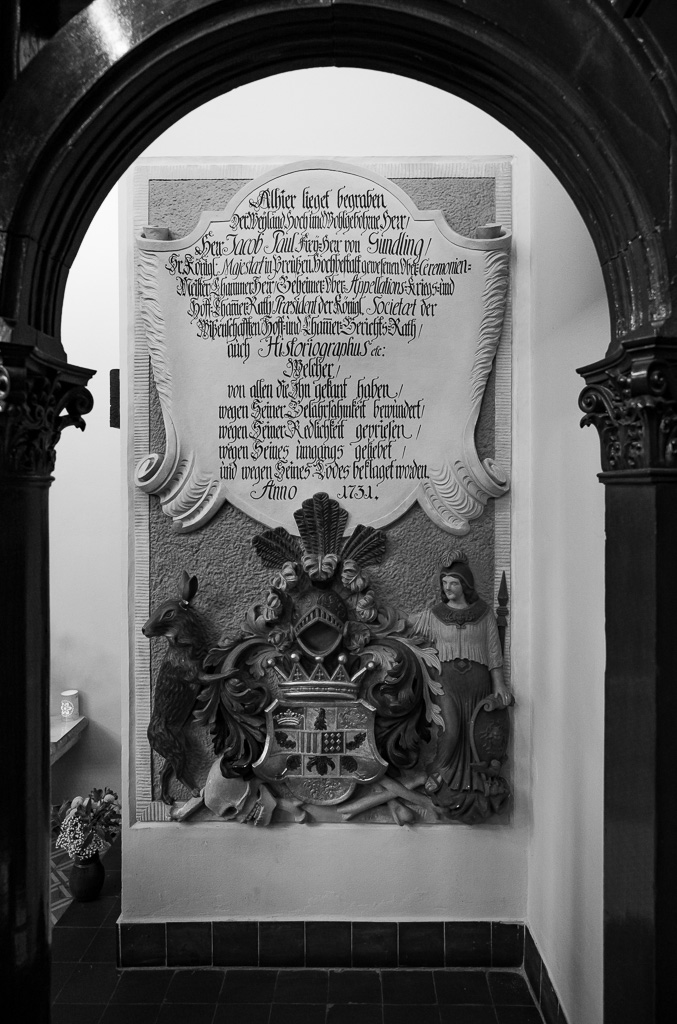 Alhier lieget begraben
Der Weyland Hoch und Wohlgebohrne Herr/
Herr Jacob Paul Frey-Herr von Gundling/
Sr. Königl. Majestät in Preußen Hochbestalt gewesener Ober Ceremonien-
Meister Cammer Herr Geheimer Ober Appellations-Kriegs-und
Hoff-Cammer-Rath Præsident der Königl. Societæt der
Wißenschafften Hoff-und Cammer-Gerichts-Rath/
auch Historiographus etc:
Welcher/
von allen die Ihn gekant haben/
wegen Seiner Gelahrsahmkeit bewundert/
wegen Seiner Redlichkeit gepriesen/
wegen Seines umgangs geliebet/
und wegen Seines Todes beklaget worden.
Anno 1731.